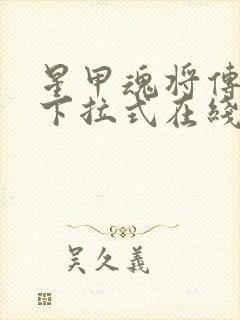 星甲魂将傳
下拉式在綫
吴久義